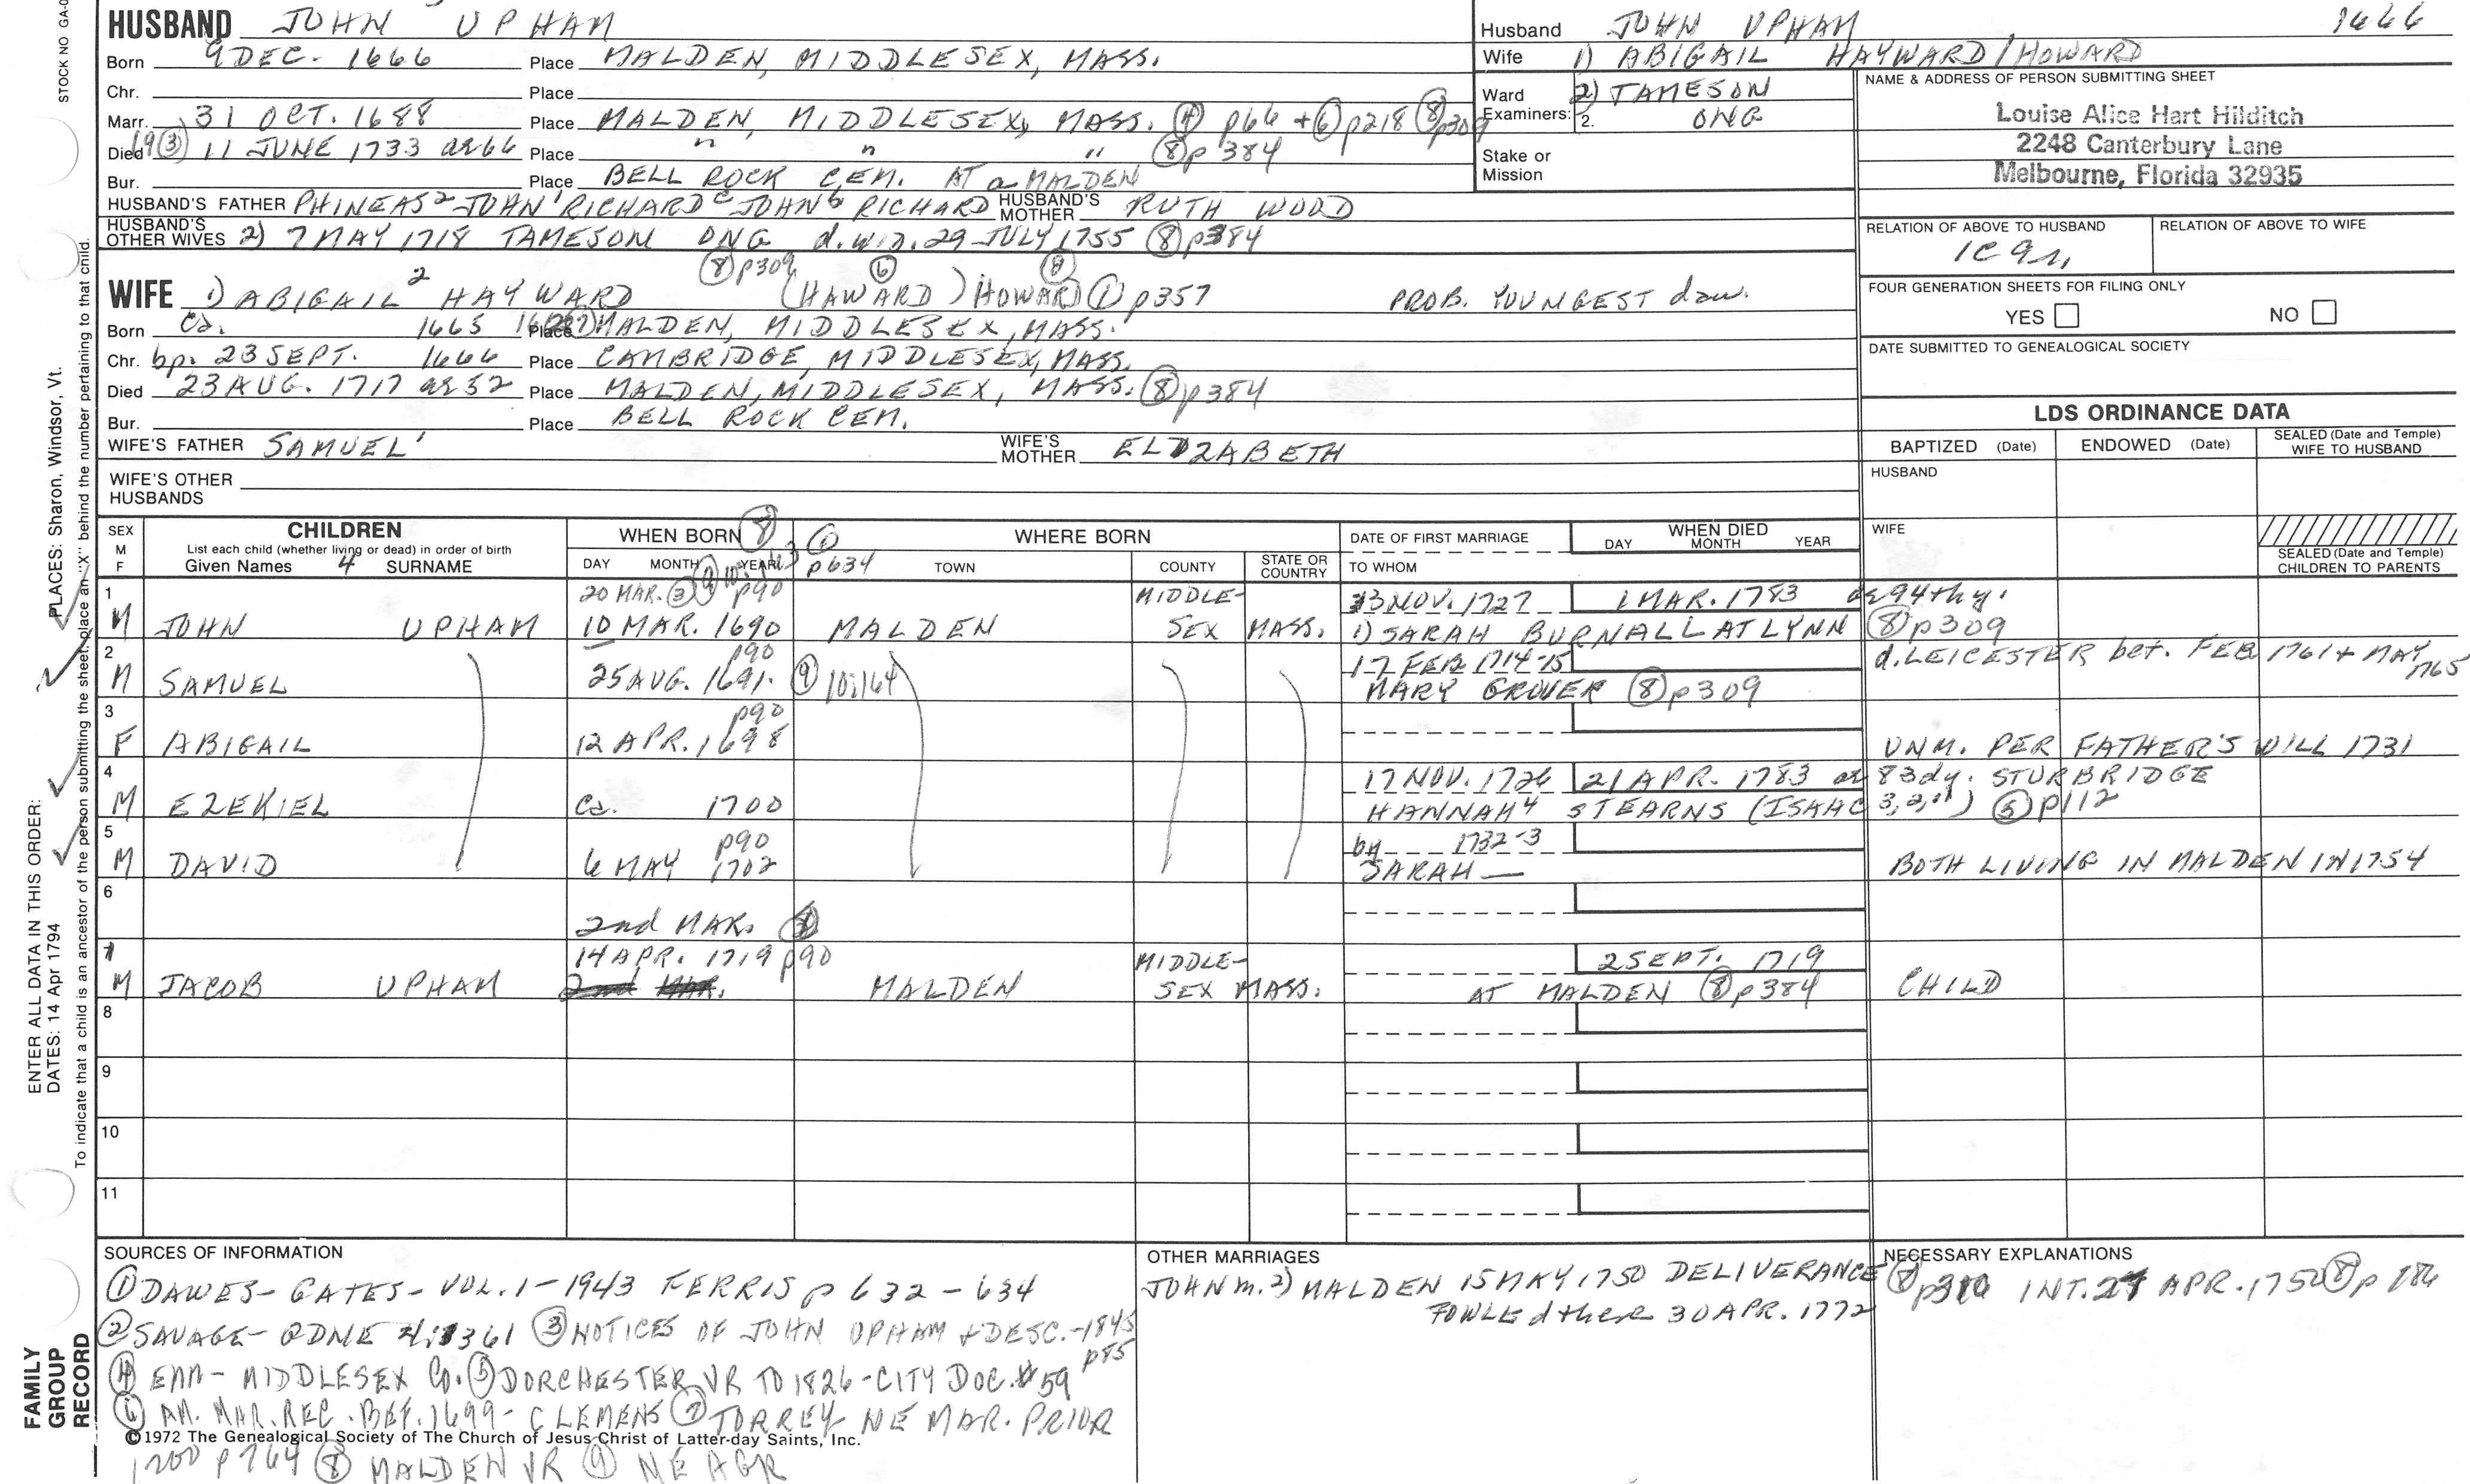 STOCK NO GA-0
HUSBAND JOHN UPHAM
Born 9 DEC. 1666 Place MALDEN, MIDDLESEX, MASS.
Chr. Place
Marr. 31 OCT. 1688 Place MALDEN, MIDDLESEX, MASS. ④ p66 + ⑥ p218 ⑧ p309
Died ③ 11 JUNE 1733 ae 66 Place " " " ⑧ p 384
Bur. Place BELL ROCK CEM. AT MALDEN
HUSBAND'S FATHER PHINEAS² JOHN RICHARD JOHN RICHARD HUSBAND'S MOTHER RUTH WOOD
HUSBAND'S OTHER WIVES 2) 7 MAY 1718 TAMESON ONG d. wid. 29 JULY 1755 ⑧ p384
⑧ p309 ⑥ ⑧
WIFE 1) ABIGAIL² HAYWARD (HAWARD) HOWARD ① p357 PROB. YOUNGEST dau.
Born Ca. 1665 Place MALDEN, MIDDLESEX, MASS.
Chr. bp. 23 SEPT. 1666 Place CAMBRIDGE, MIDDLESEX, MASS.
Died 23 AUG. 1717 ae 52 Place MALDEN, MIDDLESEX, MASS. ⑧ p384
Bur. Place BELL ROCK CEM.
WIFE'S FATHER SAMUEL' WIFE'S MOTHER ELIZABETH
WIFE'S OTHER HUSBANDS
Husband JOHN UPHAM 1666
Wife 1) ABIGAIL HAYWARD/HOWARD
Ward Examiners: 2) TAMESON
2. ONG
Stake or Mission
NAME & ADDRESS OF PERSON SUBMITTING SHEET
Louise Alice Hart Hilditch
2248 Canterbury Lane
Melbourne, Florida 32935
RELATION OF ABOVE TO HUSBAND RELATION OF ABOVE TO WIFE
1C 9r,
FOUR GENERATION SHEETS FOR FILING ONLY
YES NO
DATE SUBMITTED TO GENEALOGICAL SOCIETY
LDS ORDINANCE DATA
BAPTIZED (Date) ENDOWED (Date) SEALED (Date and Temple) WIFE TO HUSBAND
HUSBAND
WIFE
SEALED (Date and Temple) CHILDREN TO PARENTS
SEX M F CHILDREN WHEN BORN ⑧ ① WHERE BORN DATE OF FIRST MARRIAGE WHEN DIED
List each child (whether living or dead) in order of birth
Given Names 4 SURNAME DAY MONTH YEAR p634 TOWN COUNTY STATE OR COUNTRY TO WHOM DAY MONTH YEAR
1 20 MAR. ③ ⑨ p90 MIDDLE- 23 NOV. 1727 1 MAR. 1783 ae 94th y.
M JOHN UPHAM 10 MAR. 1690 MALDEN SEX MASS. 1) SARAH BURNALL AT LYNN ⑧ p309
2 p90 17 FEB 1714-15 d. LEICESTER bet. FEB 1761 + MAY 1765
M SAMUEL 25 AUG. 1691. ⑨ 10:164 MARY GROVER ⑧ p309
3 p90
F ABIGAIL 12 APR. 1698 UNM. PER FATHER'S WILL 1731
4 17 NOV. 1726 21 APR. 1783 ae 83d y. STURBRIDGE
M EZEKIEL Ca. 1700 HANNAH⁴ STEARNS (ISAAC 3,2,1) ⑤ p112
5 p90 by 1732-3
M DAVID 6 MAY 1702 SARAH — BOTH LIVING IN MALDEN IN 1754
6
2nd MAR.
7 14 APR. 1719 p90 MIDDLE- 2 SEPT. 1719
M JACOB UPHAM MALDEN SEX MASS. AT MALDEN ⑧ p384 CHILD
8
9
10
11
SOURCES OF INFORMATION
① DAWES-GATES-VOL. 1-1943 FERRIS p 632-634
② SAVAGE- GDNE 4:361 ③ NOTICES OF JOHN UPHAM + DESC.-1845 p85
④ EMM- MIDDLESEX Co. ⑤ DORCHESTER VR TO 1826-CITY DOC. #59
⑥ AM. MAR. REC. BEF. 1699- CLEMENS ⑦ TORREY NE MAR. PRIOR
©1972 The Genealogical Society of The Church of Jesus Christ of Latter-day Saints, Inc.
1700 p764 ⑧ MALDEN VR ⑨ NE
OTHER MARRIAGES
JOHN m. 2) MALDEN 15 MAY 1750 DELIVERANCE
FOWLE d there 30 APR. 1772
NECESSARY EXPLANATIONS
⑧ p310 INT. 27 APR. 1750 ⑧ p
ENTER ALL DATA IN THIS ORDER:
DATES: 14 Apr 1794 PLACES: Sharon, Windsor, Vt.
To indicate that a child is an ancestor of the person submitting the sheet, place an "X" behind the number pertaining to that child.
FAMILY GROUP RECORD